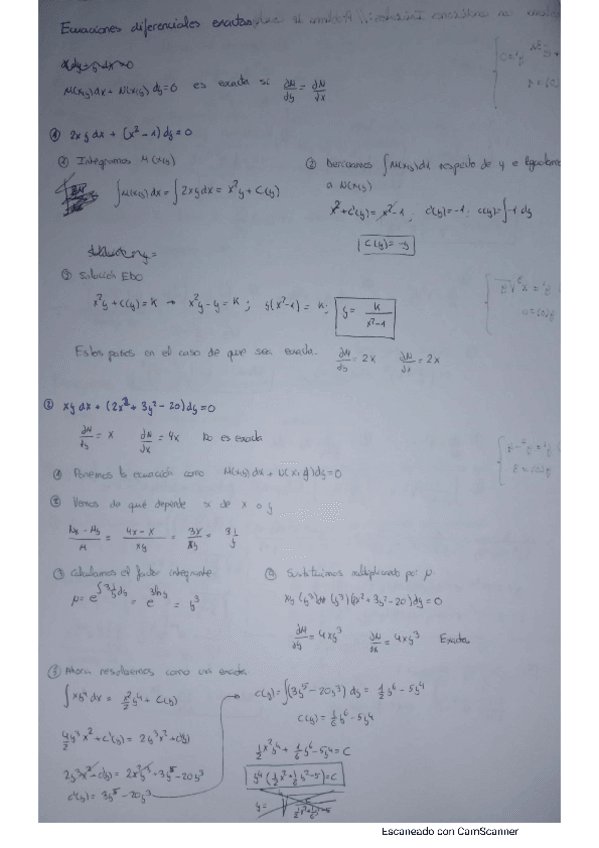 Ecuaciones diferenciales exactas
M(x,y)dx + N(x,y)dy=0 es exacta si ∂M/dy = ∂N/dx
① 2xy dx + (x²-1)dy=0
① Integramos M(x,y)
∫M(x,y)dx = ∫2xydx = x²y + C(y)
② Derivamos ∫M(x,y)dx respecto de y e igualamos
a N(x,y)
x²+c'(y)= x²-1; c'(y)=-1; c(y)=∫-1 dy
C(y)=-y
③ Solución EDO
x²y+C(y)=K → x²y-y=K; y(x²-1)=K; y= K/x²-1
Estos pasos en el caso de que sea exacta. ∂M/dy = 2x ∂N/dx = 2x
② xy dx + (2x²+3y²-20)dy=0
∂M/dy = x ∂N/dx = 4x No es exacta
① Ponemos la ecuación como M(x,y)dx + N(x,y)dy=0
② Vemos de que depende si de x o y
Nx - My/M = 4x-x/xy = 3x/xy = 3 1/y
③ Calculamos el factor integrante
μ= e^∫3 1/y dy = e^3lny = y³
④ Sustituimos multiplicando por μ
xy(y³)dx+(y³)(2x²+3y²-20)dy=0
∂M/dy = 4xy³ ∂N/dx = 4xy³ Exacta
⑤ Ahora resolvemos como una exacta
∫xy⁴dx = x²/2 y⁴ + C(y)
4/2 y³x²+c'(y)= 2y³x²+c'(y)
2y³x²+c'(y)= 2x²y³+3y⁵-20y³
c'(y)= 3y⁵-20y³
C(y)=∫(3y⁵-20y³)dy = 1/2 y⁶-5y⁴
C(y)= 1/6 y⁶-5y⁴
1/2 x²y⁴+ 1/6 y⁶-5y⁴=C
y⁴(1/2 x²+1/6 y²-5)=C
Escaneado con CamScanner